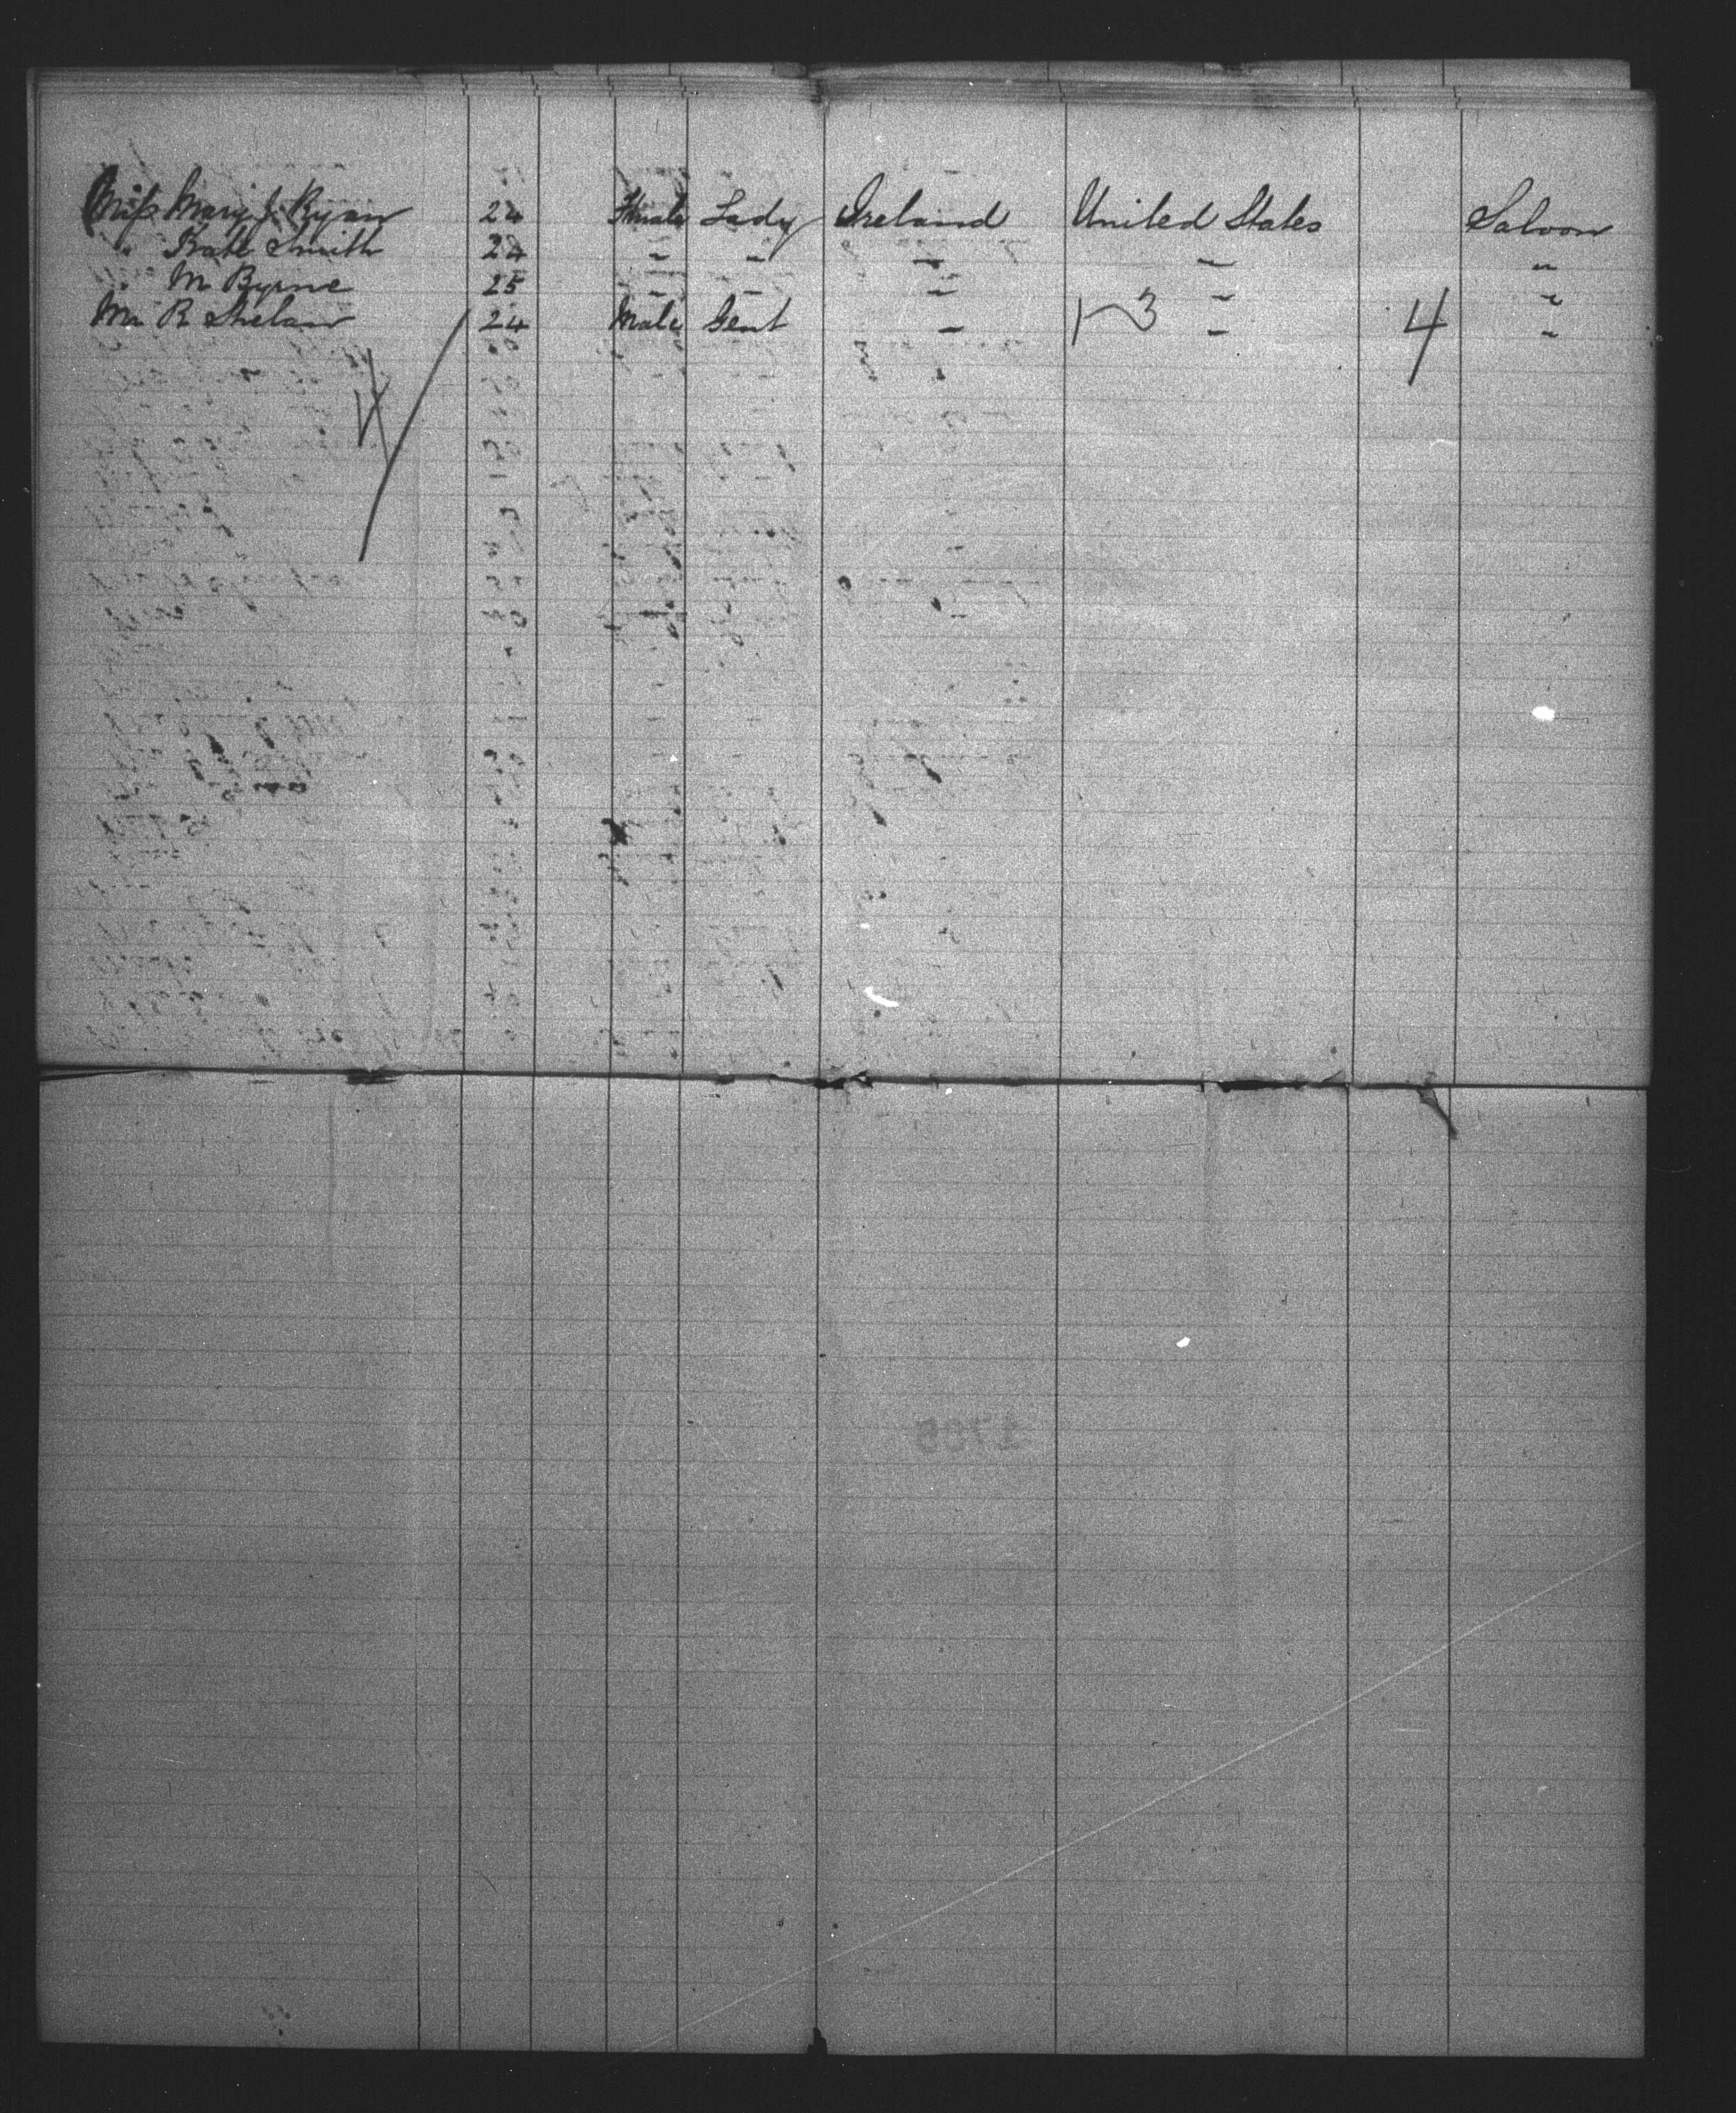 Miss Mary J. Ryan 24 Female Lady Ireland United States Saloon
" Kate Smith 24 " " " " "
" M Byrne 25 " " " " "
Mr R 24 Male Gent " 1-3 " 4 "
4
1705